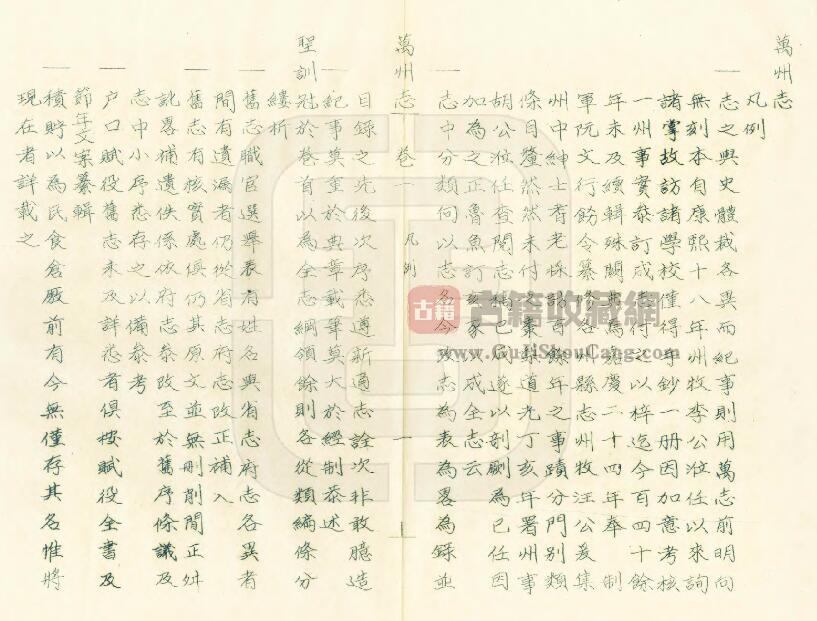 萬州志
凡例
一志之與史體裁各異而紀事則用萬志前明向
無刻本自康熙十八年州牧李公涖任以來詢
諸掌故訪諸學校僅得手鈔一册因加意考核
一州事實叅訂成志行之以梓迄今百四十餘
年未及續輯殊闕嘉慶二十四年奉制
軍阮文行飭令纂修各州縣志州牧汪公爰集
州中紳士耆老採訪百餘年之事蹟分門別類
條目釐然然未付之棗梨道光丁亥年署州事
胡公涖任查閱志稿已成遂以剞劂為己任因
加為之正魯魚訂亥豕成全志云
一志中分類向以志名今志為表為畧為錄並
萬州志 卷一 凡例 一
目錄之先後次序悉遵新通志詮次非敢臆造
一紀事莫重於典章載筆莫大於經制恭述
聖訓冠於卷首以為全志綱領餘則各從類編條分
縷析
一舊志職官選舉表有姓名與省志府志各異者
間有遺漏者仍從省志府志改正補入
一舊志有核實處俱仍其原文並無刪削間正舛
訛畧補遺佚係依府志叅改至於舊序條議及
志中小序悉存之以備叅考
一户口賦役舊志未及詳悉者俱按賦役全書及
節年文案纂輯
一積貯以為民食倉廒前有今無僅存其名惟將
現在者詳載之
古籍
古籍收藏網
www.GujiShouCang.com